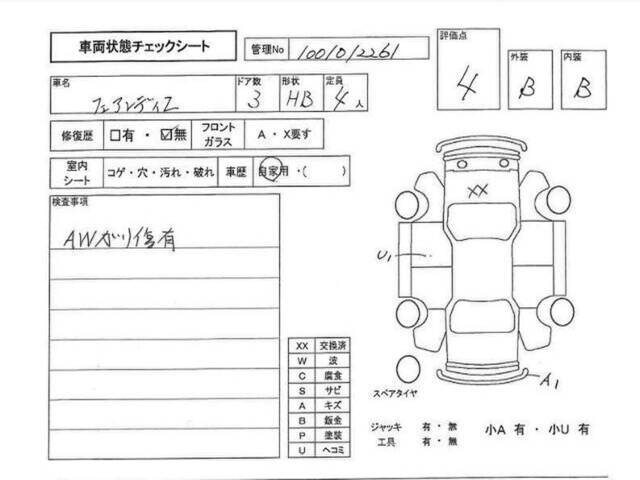 車両状態チェックシート
管理No 1001012261
評価点 4
外装 B
内装 B
車名 フェアレディZ
ドア数 3
形状 HB
定員 4人
修復歴 □有・☑無
フロントガラス A・X要す
室内シート コゲ・穴・汚れ・破れ
車歴 自家用・( )
検査事項
AWガリ傷有
XX
U1
A1
XX 交換済
W 波
C 腐食
S サビ
A キズ
B 鈑金
P 塗装
U ヘコミ
スペアタイヤ
ジャッキ 有・無
工具 有・無
小A 有・小U 有